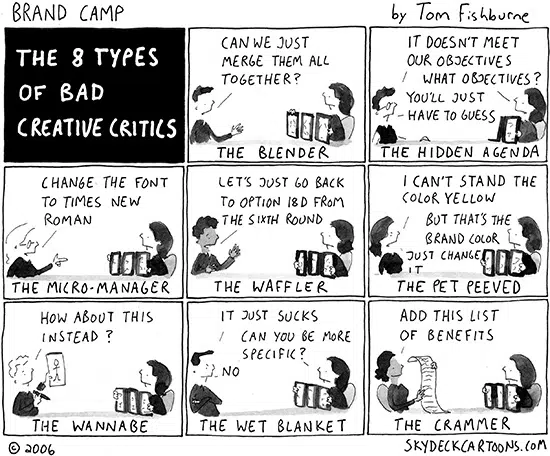 BRAND CAMP
by Tom Fishburne
THE 8 TYPES
OF BAD
CREATIVE CRITICS
CAN WE JUST
MERGE THEM ALL
TOGETHER?
THE BLENDER
IT DOESN'T MEET
OUR OBJECTIVES
WHAT OBJECTIVES?
YOU'LL JUST
HAVE TO GUESS
THE HIDDEN AGENDA
CHANGE THE FONT
TO TIMES NEW
ROMAN
THE MICRO-MANAGER
LET'S JUST GO BACK
TO OPTION 18D FROM
THE SIXTH ROUND
THE WAFFLER
I CAN'T STAND THE
COLOR YELLOW
BUT THAT'S THE
BRAND COLOR
JUST CHANGE
IT
THE PET PEEVED
HOW ABOUT THIS
INSTEAD?
THE WANNABE
IT JUST SUCKS
CAN YOU BE MORE
SPECIFIC?
NO
THE WET BLANKET
ADD THIS LIST
OF BENEFITS
THE CRAMMER
© 2006
SKYDECKCARTOONS.COM